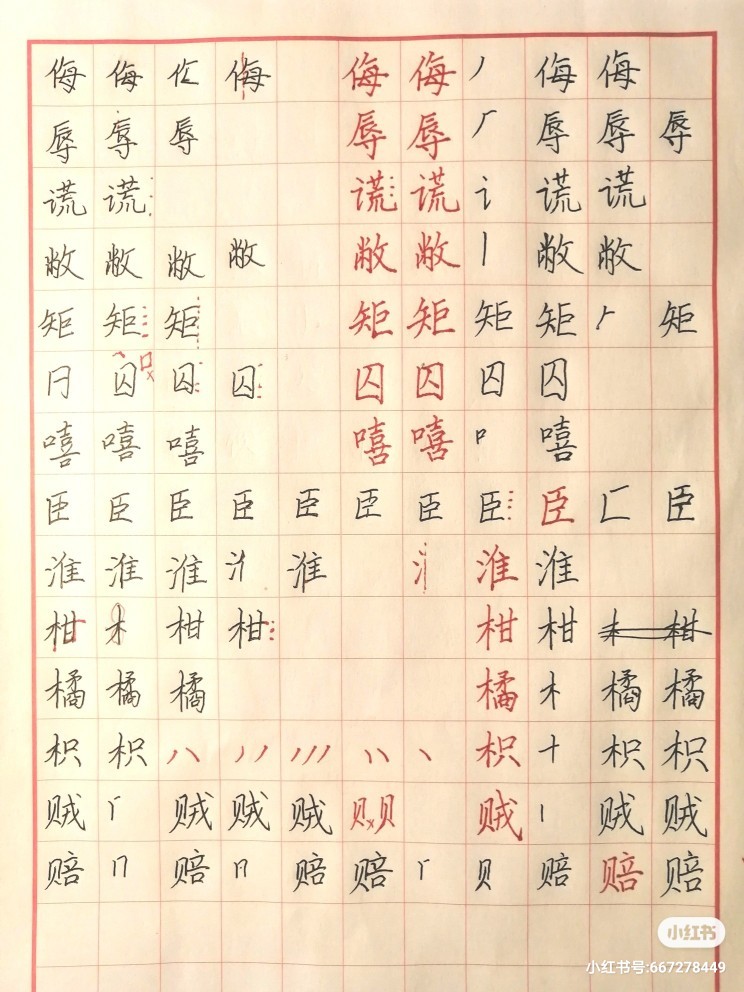 侮 侮 亻 侮 侮 侮 丿 侮 侮
辱 辱 辱 辱 辱 厂 辱 辱 辱
谎 谎 谎 谎 讠 谎 谎
敝 敝 敝 敝 敝 敝 丨 敝 敝
矩 矩 矩 矩 矩 矩 矩 矩
冃 囚 口 囚 囚 囚 囚 囚 囚
嘻 嘻 嘻 嘻 嘻 口 嘻
臣 臣 臣 臣 臣 臣 臣 臣 臣 匚 臣
淮 淮 淮 氵 淮 氵 淮 淮
柑 木 柑 柑 柑 柑 木 柑
橘 橘 橘 橘 木 橘 橘
枳 枳 八 枳 十 枳 枳
贼 贼 贼 贼 贝 贝 贼 丨 贼 贼
赔 冂 赔 冂 赔 赔 贝 赔 赔 赔
小红书
小红书号:667278449